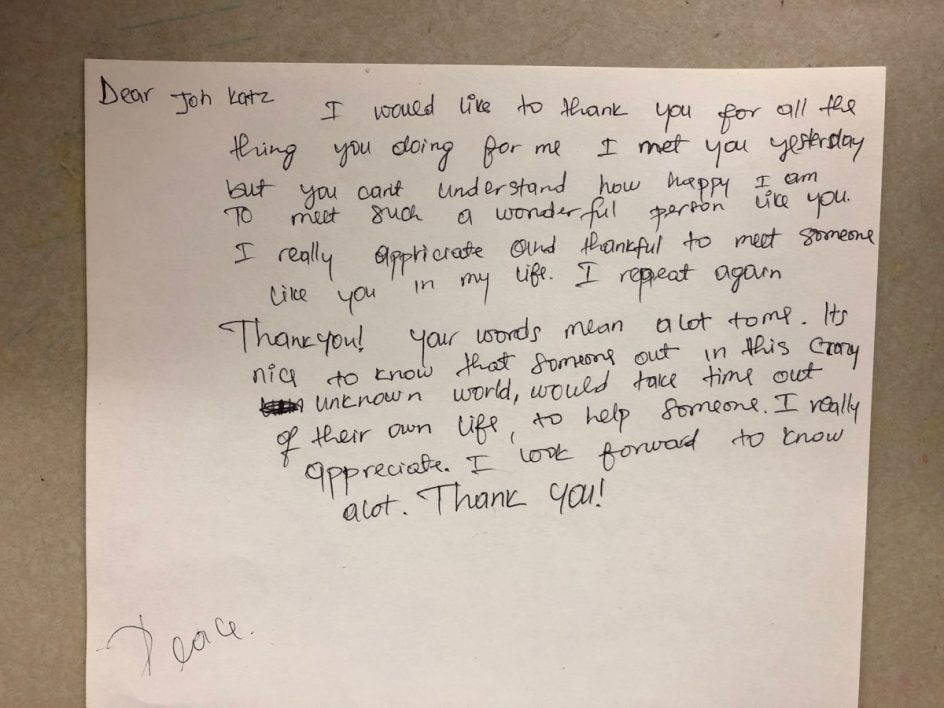 Dear Joh Katz
I would like to thank you for all the
thing you doing for me I met you yesterday
but you can't understand how happy I am
To meet such a wonderful person like you.
I really appricrate and thankful to meet someone
like you in my life. I repeat again
Thankyou! your words mean alot to me. Its
nice to know that someone out in this crazy
unknown world, would take time out
of their own life, to help someone. I really
appreciate. I look forward to know
alot. Thank you!
Peace.